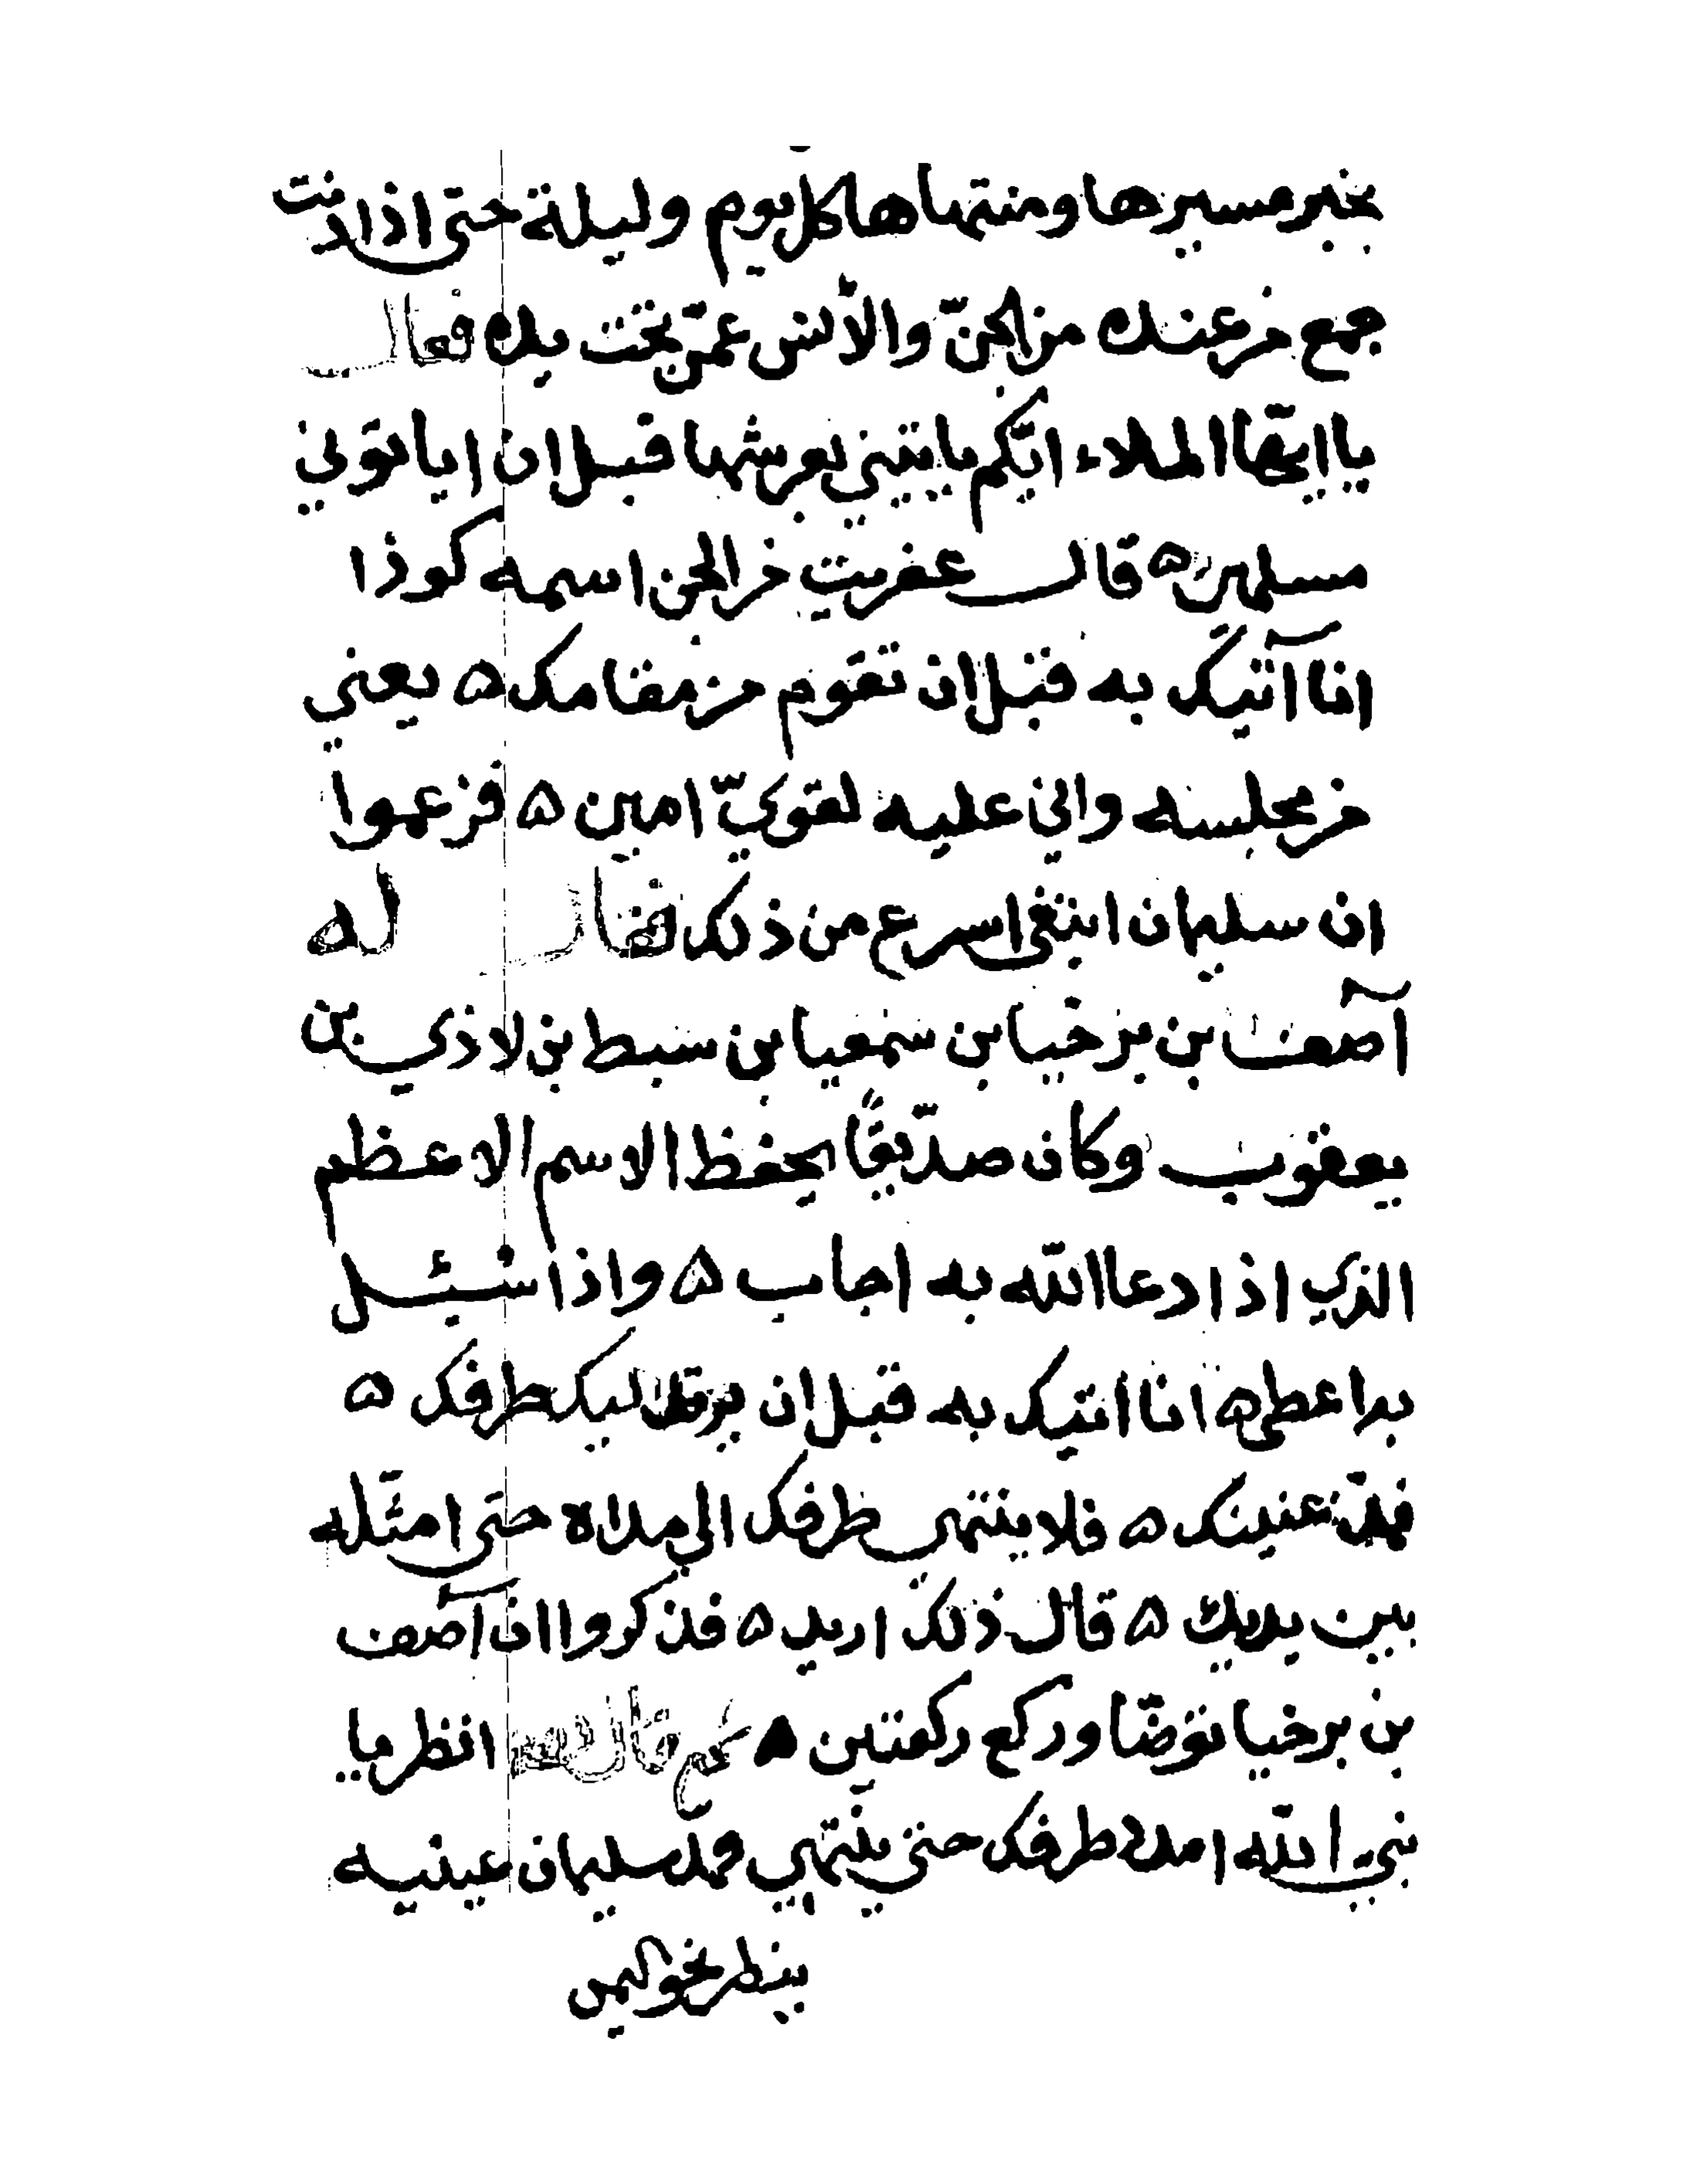 بخبر مسيرها ومنتهاها كل يوم وليلة حتى اذا دنت
جمع من عنده من الجنّ والأنس عمّن تحت يده فقال
يا ايّها الملاء ايّكم ياتيني بعرشها قبل ان ياتوني
مسلمين ۵ قال عفريت من الجن اسمه كوذا
انا آتيك به قبل ان تقوم من مقامك ۵ يعني
من مجلسه واني عليه لقويّ امين ۵ فزعموا
ان سليمان ابتغى اسرع من ذلك فقال له
آصف بن برخيا بن سمعيا بن سبط بن لاذي بن
يعقوب وكان صدّيقًا يحفظ الاسم الاعظم
الذي اذا دعا الله به اجاب ۵ واذا سُئل
به اعطى ۵ انا اتيك به قبل ان يرتد اليك طرفك ۵
فمدّ عنينك ۵ فلا ينتهى طرفك الي مداه حتى امثّله
بين يديك ۵ قال ذلك اريد ۵ فذكروا ان آصف
بن برخيا توضّا وركع ركعتين ۵ ثم قال انظر يا
نبيّ الله امدد طرفك حتى ينتهي فمد سليمان عينيه
ينظر نحو اليمن